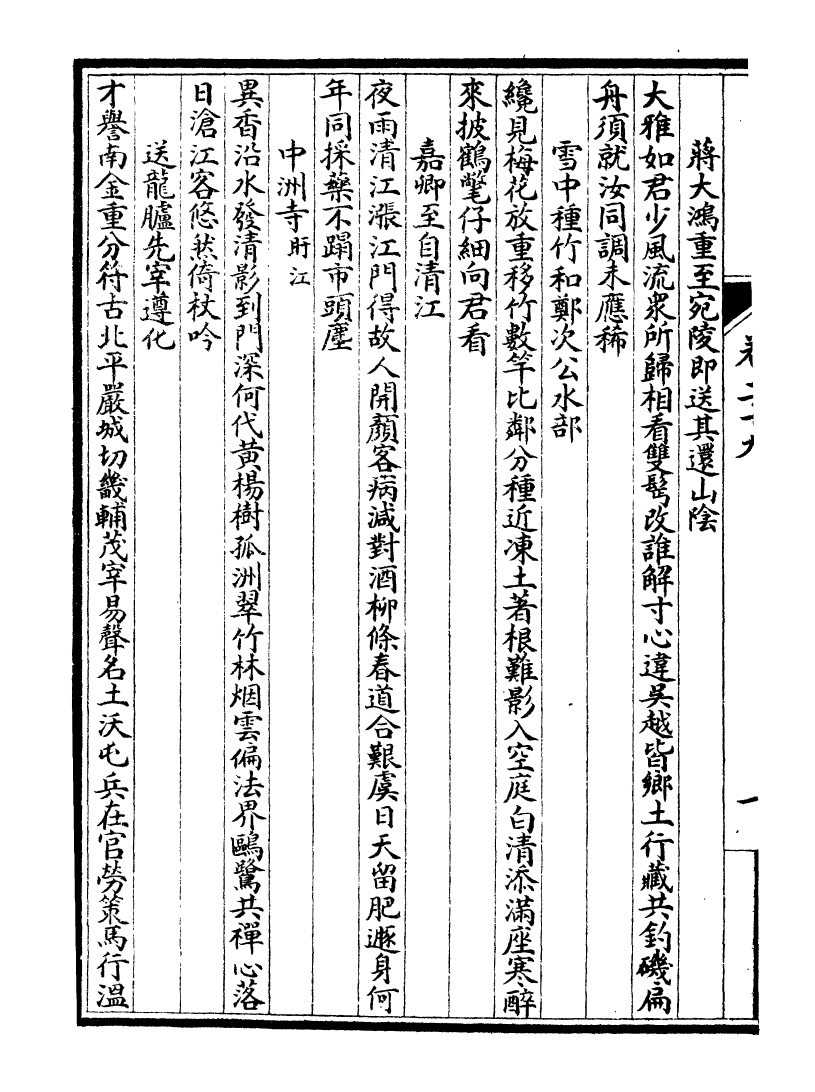 卷二十九
一
蔣大鴻重至宛陵即送其還山陰
大雅如君少風流衆所歸相看雙髩改誰解寸心違吳越皆鄉土行藏共釣磯扁
舟須就汝同調未應稀
雪中種竹和鄭次公水部
纔見梅花放重移竹數竿比鄰分種近凍土著根難影入空庭白清添滿座寒醉
來披鶴氅仔細向君看
嘉卿至自清江
夜雨清江漲江門得故人開顏客病減對酒柳條春道合艱虞日天留肥遯身何
年同採藥不蹋市頭塵
中洲寺盱江
異香沿水發清影到門深何代黃楊樹孤洲翠竹林烟雲偏法界鷗鷺共禪心落
日滄江客悠然倚杖吟
送龍臚先宰遵化
才譽南金重分符古北平嚴城切畿輔茂宰易聲名土沃屯兵在官勞策馬行溫